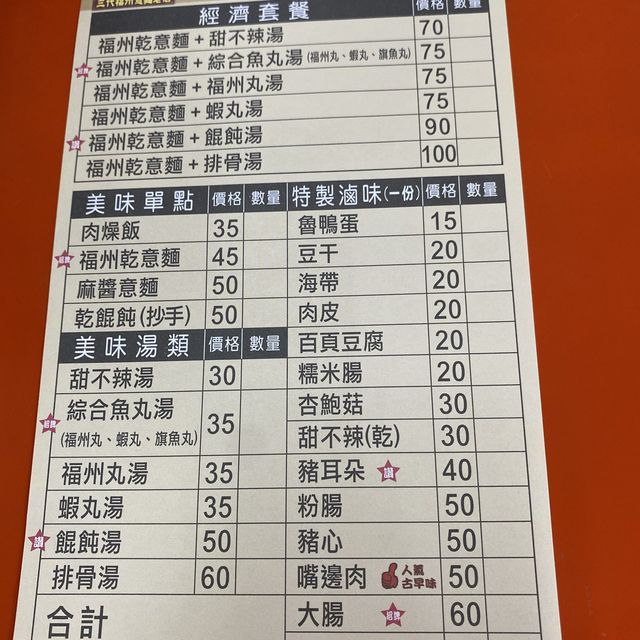 經濟套餐 價格 數量
福州乾意麵+甜不辣湯 70
招牌 福州乾意麵+綜合魚丸湯(福州丸、蝦丸、旗魚丸) 75
福州乾意麵+福州丸湯 75
福州乾意麵+蝦丸湯 75
讚 福州乾意麵+餛飩湯 90
福州乾意麵+排骨湯 100
美味單點 價格 數量
肉燥飯 35
招牌 福州乾意麵 45
麻醬意麵 50
乾餛飩(抄手) 50
美味湯類 價格 數量
甜不辣湯 30
招牌 綜合魚丸湯 35
(福州丸、蝦丸、旗魚丸)
福州丸湯 35
蝦丸湯 35
讚 餛飩湯 50
排骨湯 60
合計
特製滷味(一份) 價格 數量
魯鴨蛋 15
豆干 20
海帶 20
肉皮 20
百頁豆腐 20
糯米腸 20
杏鮑菇 30
甜不辣(乾) 30
豬耳朵 讚 40
粉腸 50
豬心 50
嘴邊肉 人氣 古早味 50
大腸 招牌 60